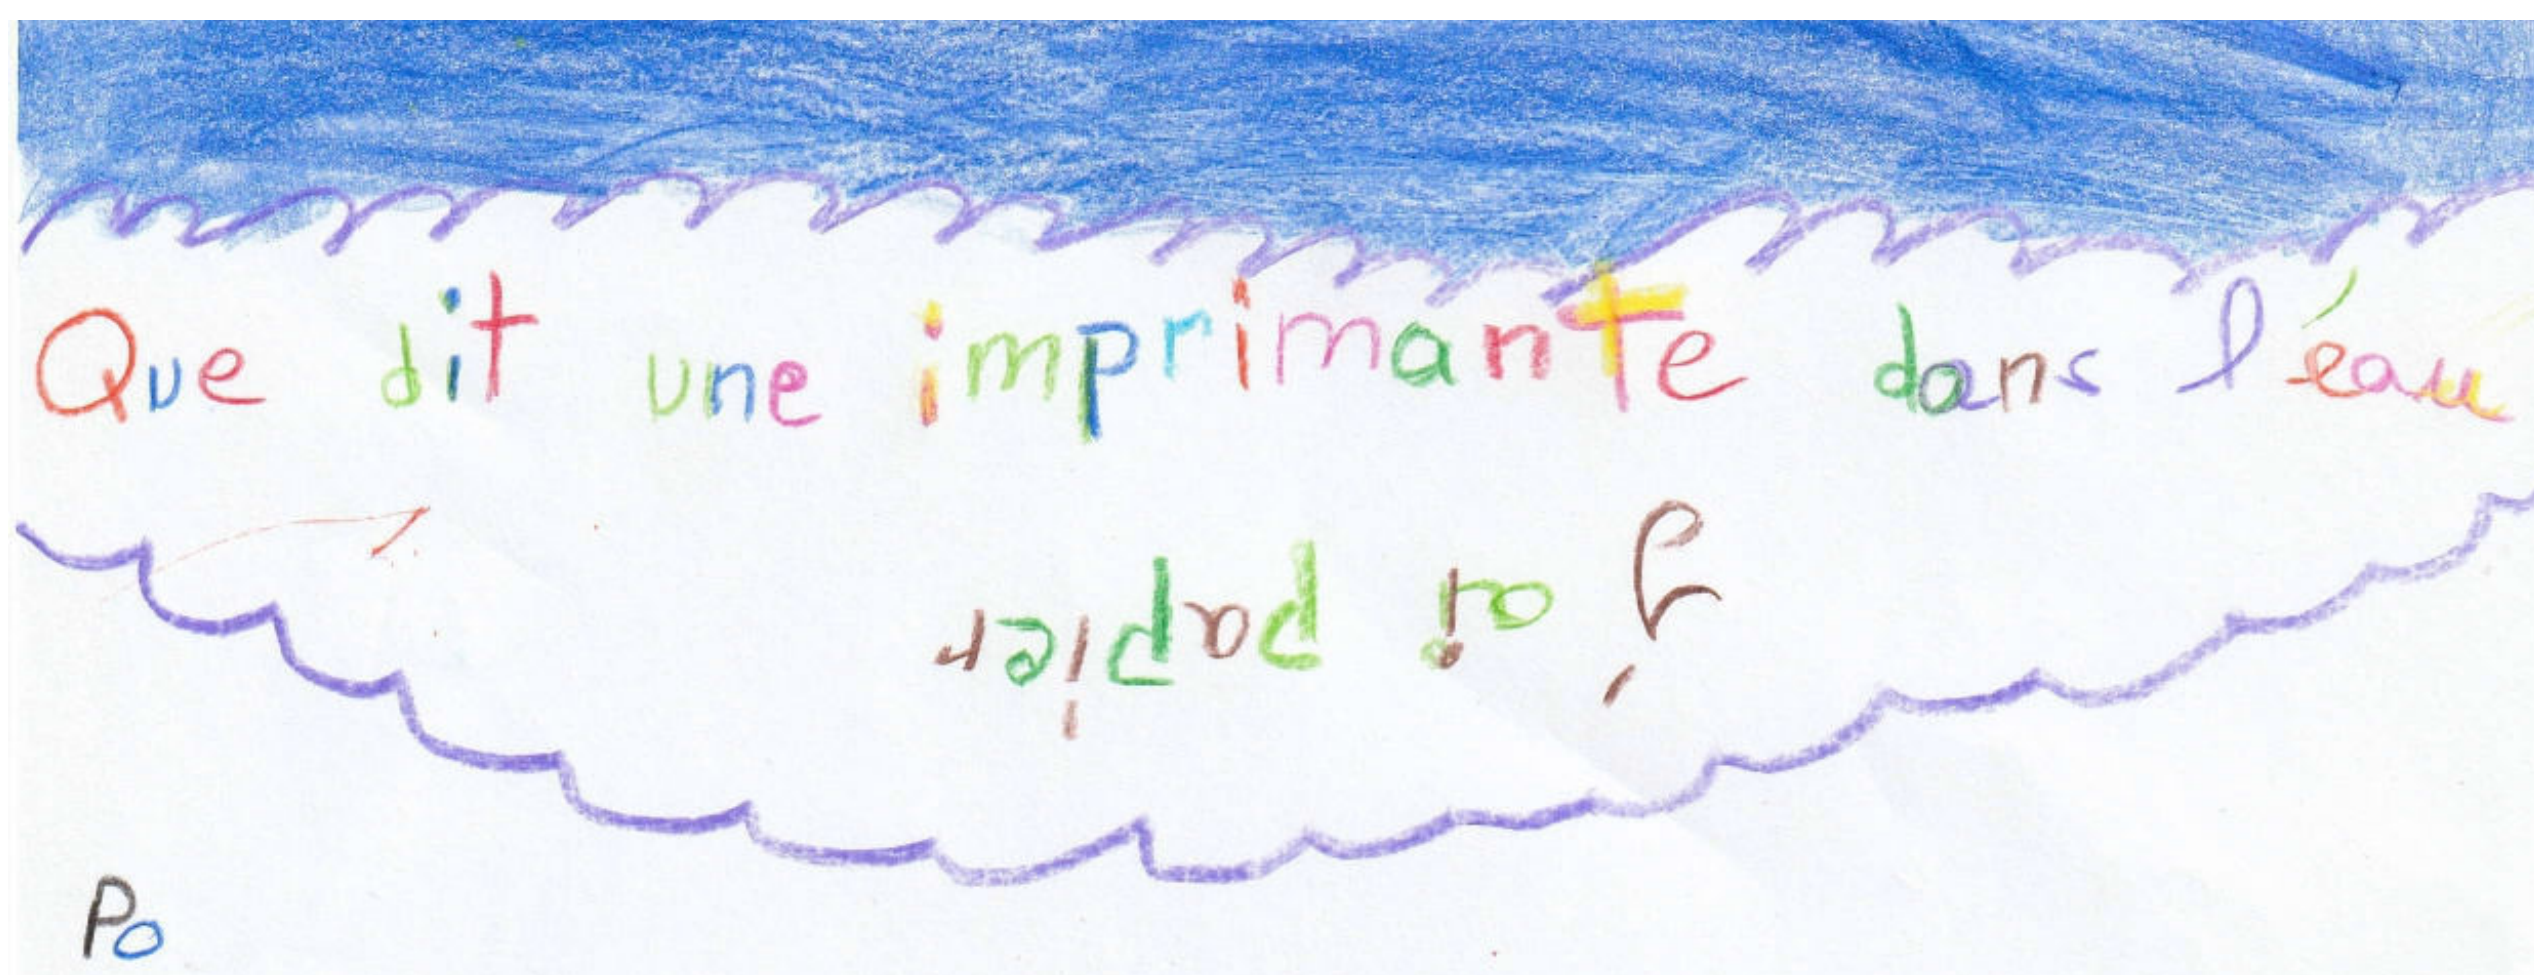 Que dit une imprimante dans l'eau
J'ai papier
Po